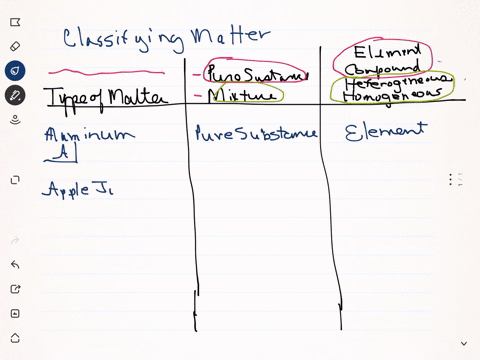 Classifying Matter
Type of Matter
- Pure Sustance
- Mixture
Element
Compound
Heterogeneous
Homogeneous
Aluminum
Al
Pure Substance
Element
Apple Ju